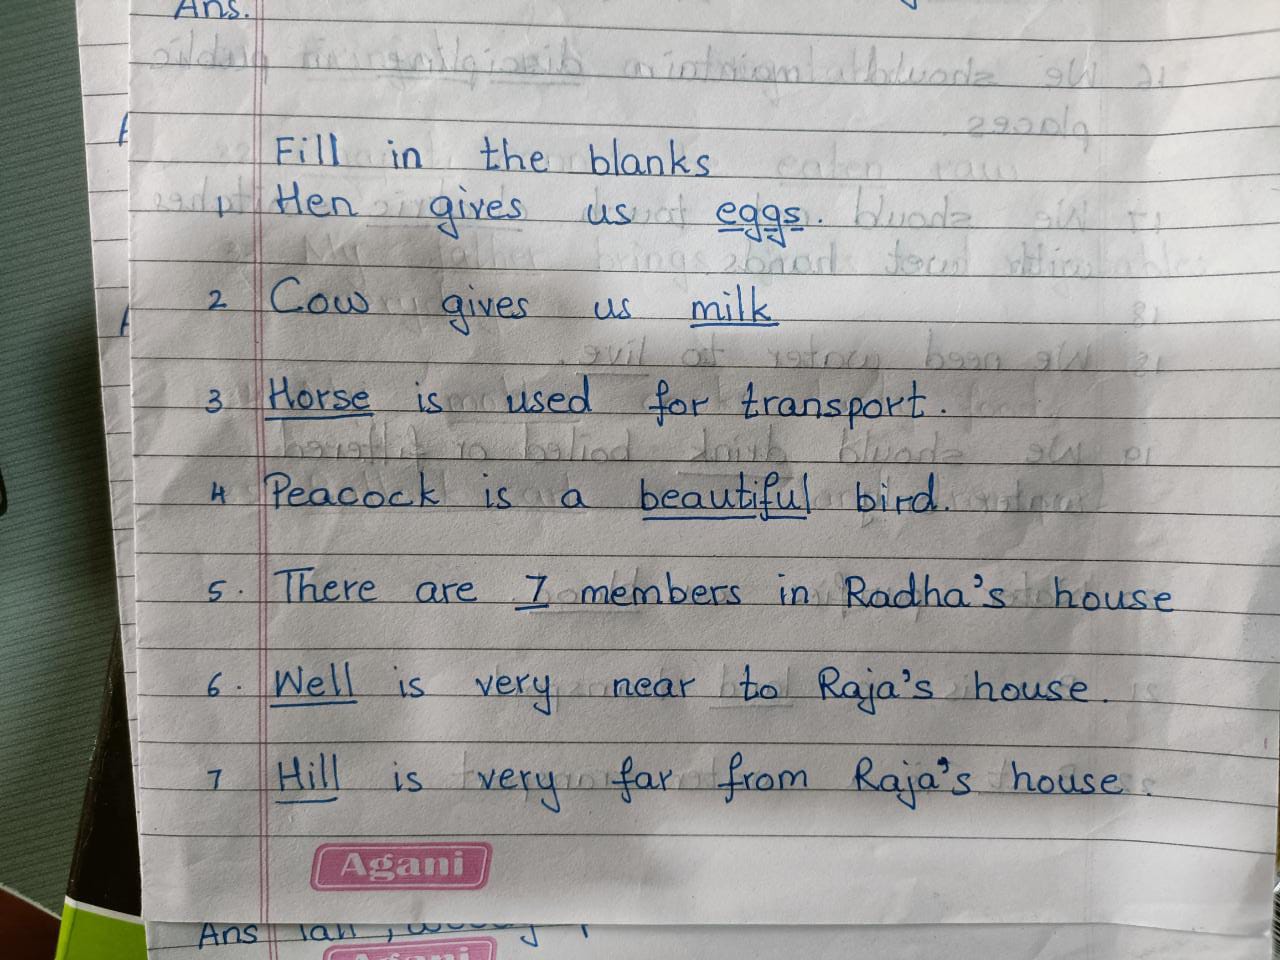 Ans.
Fill in the blanks
1 Hen gives us eggs.
2 Cow gives us milk
3 Horse is used for transport.
4 Peacock is a beautiful bird.
5. There are 7 members in Radha's house
6. Well is very near to Raja's house.
7 Hill is very far from Raja's house.
Agani
Ans
Agani